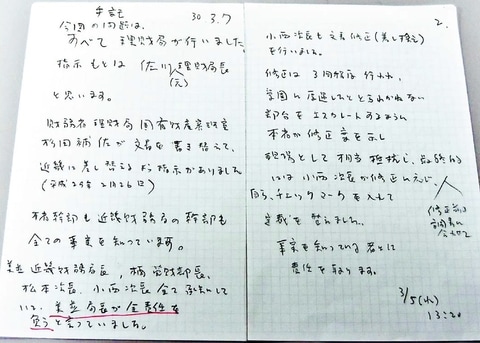 手記
30 3.7
今回の問題は、
すべて理財局が行いました。
指示もとは 佐川理財局長
(元)
と思います。
財務省理財局 国有財産業務室
杉田補佐が 文書を書き換えて、
近畿に差し替えるよう指示がありました
(平成29年 2月26日)
本省幹部も近畿財務局の幹部も
全ての事実を知っています。
美並近畿財務局長、楠管財部長、
松本次長、小西次長 全て承知して
美並局長が全責任を
負うと言っていました。
2.
小西次長も文書修正(差し換え)
を行いました。
修正は 3回程度行われ、
本省が修正案を示し
現場として相当抵抗し、最終的
には小西次長が修正に応じ
自ら、チェックマークを入れて
修正前は
調書に
決裁を整えました。
事実を知っている者として
責任を取ります。
3/5(水)
13:20